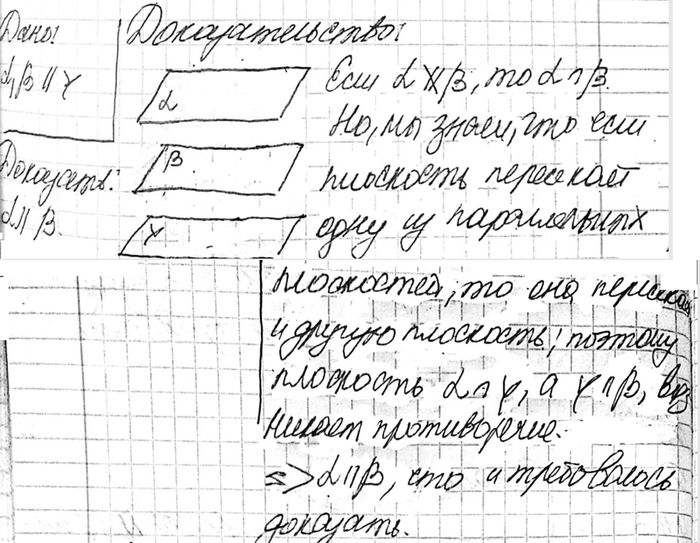 Дано:
α, β ∥ γ
Доказать:
α ∥ β.
Доказательство:
α
β
γ
Если α ∦ β, то α ∩ β.
Но, мы знаем, что если
плоскость пересекает
одну из параллельных
плоскостей, то она пересекает
и другую плоскость; поэтому
плоскость α ∩ γ, а γ ∩ β, воз
никает противоречие.
=> α ∥ β, что и требовалось
доказать.